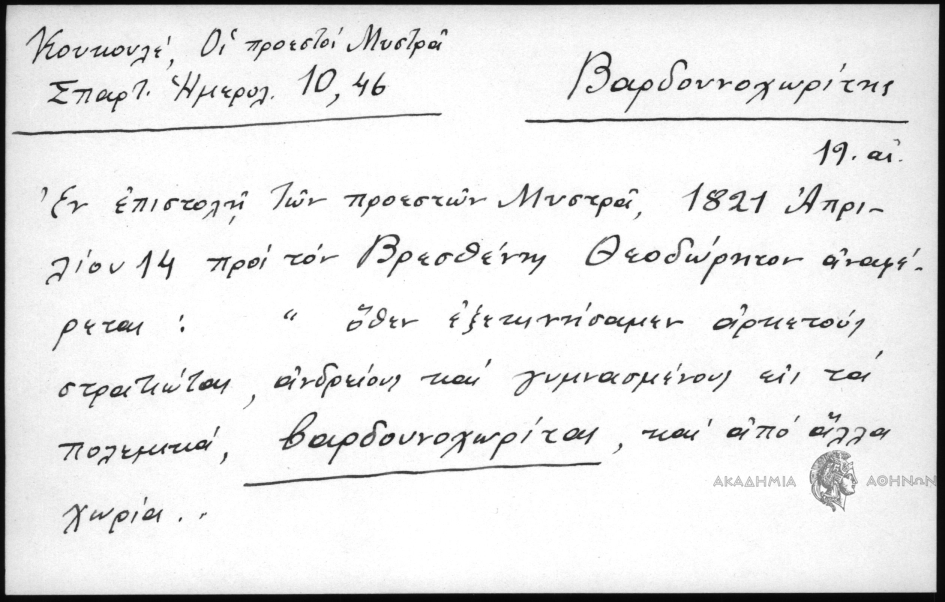 Κουκουλέ, Οἱ προεστοί Μυστρᾶ
Σπαρτ. Ἡμερολ. 10, 46
Βαρδουνοχωρίτης
19. αἰ.
Ἐν ἐπιστολῇ τῶν προεστών Μυστρᾶ, 1821 Ἀπρι-
λίου 14 πρός τόν Βρεσθένης Θεοδώρητον ἀναφέ-
ρεται : “ ὅθεν ἐξεκινήσαμεν ἀρκετούς
στρατιώτας, ἀνδρείους καί γυμνασμένους εἰς τά
πολεμικά, βαρδουνοχωρίτας, καί ἀπό ἄλλα
χωρία..
ΑΚΑΔΗΜΙΑ ΑΘΗΝΩΝ